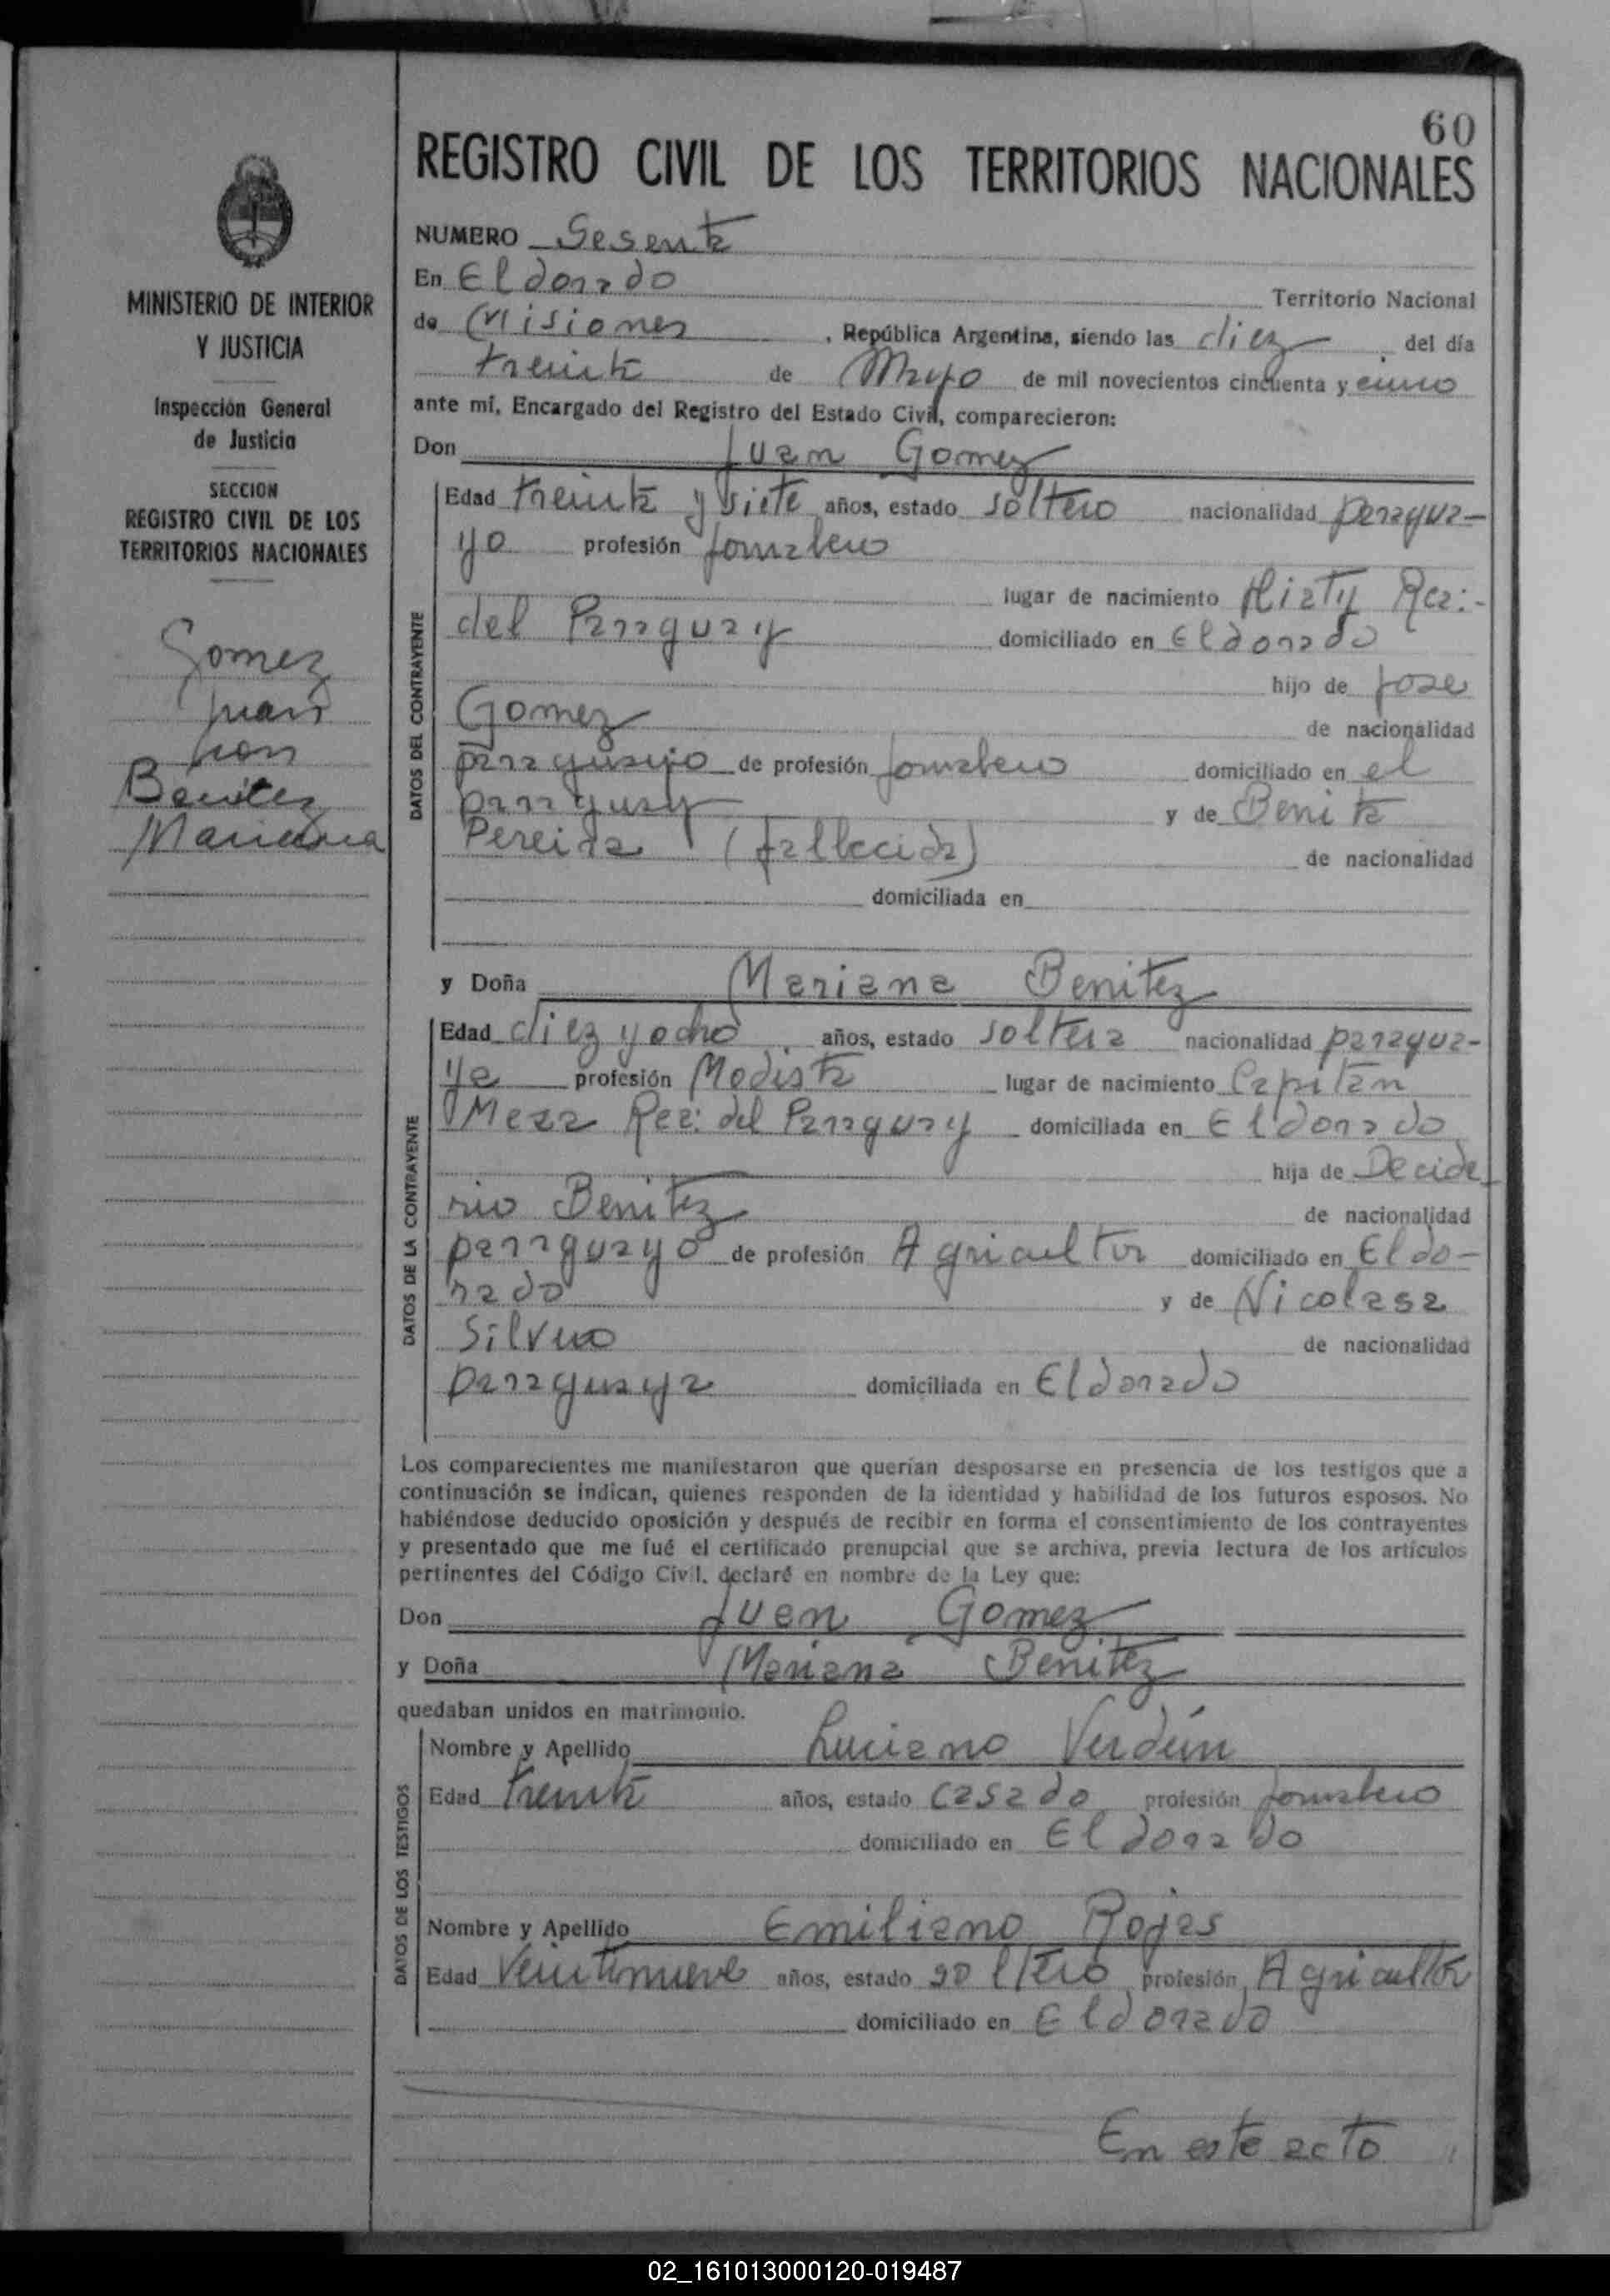 60
REGISTRO CIVIL DE LOS TERRITORIOS NACIONALES
MINISTERIO DE INTERIOR
Y JUSTICIA
Inspección General
de Justicia
SECCION
REGISTRO CIVIL DE LOS
TERRITORIOS NACIONALES
Gomez
Juan
con
Benitez
Mariana
NUMERO Sesenta
En Eldorado Territorio Nacional
de Misiones, República Argentina, siendo las diez, del día
treinta de Mayo de mil novecientos cincuenta y cinco
ante mí, Encargado del Registro del Estado Civil, comparecieron:
Don Juan Gomez
DATOS DEL CONTRAYENTE
Edad treinta y siete años, estado soltero nacionalidad paragua-
yo profesión jornalero
lugar de nacimiento Rca:-
del Paraguay domiciliado en Eldorado
hijo de Jose
Gomez de nacionalidad
paraguayo de profesión jornalero domiciliado en el
paraguay y de Benita
Pereira (fallecida) de nacionalidad
domiciliada en
y Doña Mariana Benitez
DATOS DE LA CONTRAYENTE
Edad diez y ocho años, estado soltera nacionalidad paragua-
ya profesión Modista lugar de nacimiento Capitan
Meza Rca: del Paraguay domiciliada en Eldorado
hija de Decide
rio Benitez de nacionalidad
paraguayo de profesión Agricultor domiciliado en Eldo-
rado y de Nicolasa
Silvero de nacionalidad
paraguaya domiciliada en Eldorado
Los comparecientes me manifestaron que querían desposarse en presencia de los testigos que a
continuación se indican, quienes responden de la identidad y habilidad de los futuros esposos. No
habiéndose deducido oposición y después de recibir en forma el consentimiento de los contrayentes
y presentado que me fué el certificado prenupcial que se archiva, previa lectura de los artículos
pertinentes del Código Civil, declaré en nombre de la Ley que:
Don Juan Gomez
y Doña Mariana Benitez
quedaban unidos en matrimonio.
DATOS DE LOS TESTIGOS
Nombre y Apellido Luciano Verdún
Edad treinta años, estado casado profesión jornalero
domiciliado en Eldorado
Nombre y Apellido Emiliano Rojas
Edad Veintinueve años, estado soltero profesión Agricultor
domiciliado en Eldorado
En este acto
02_161013000120-019487